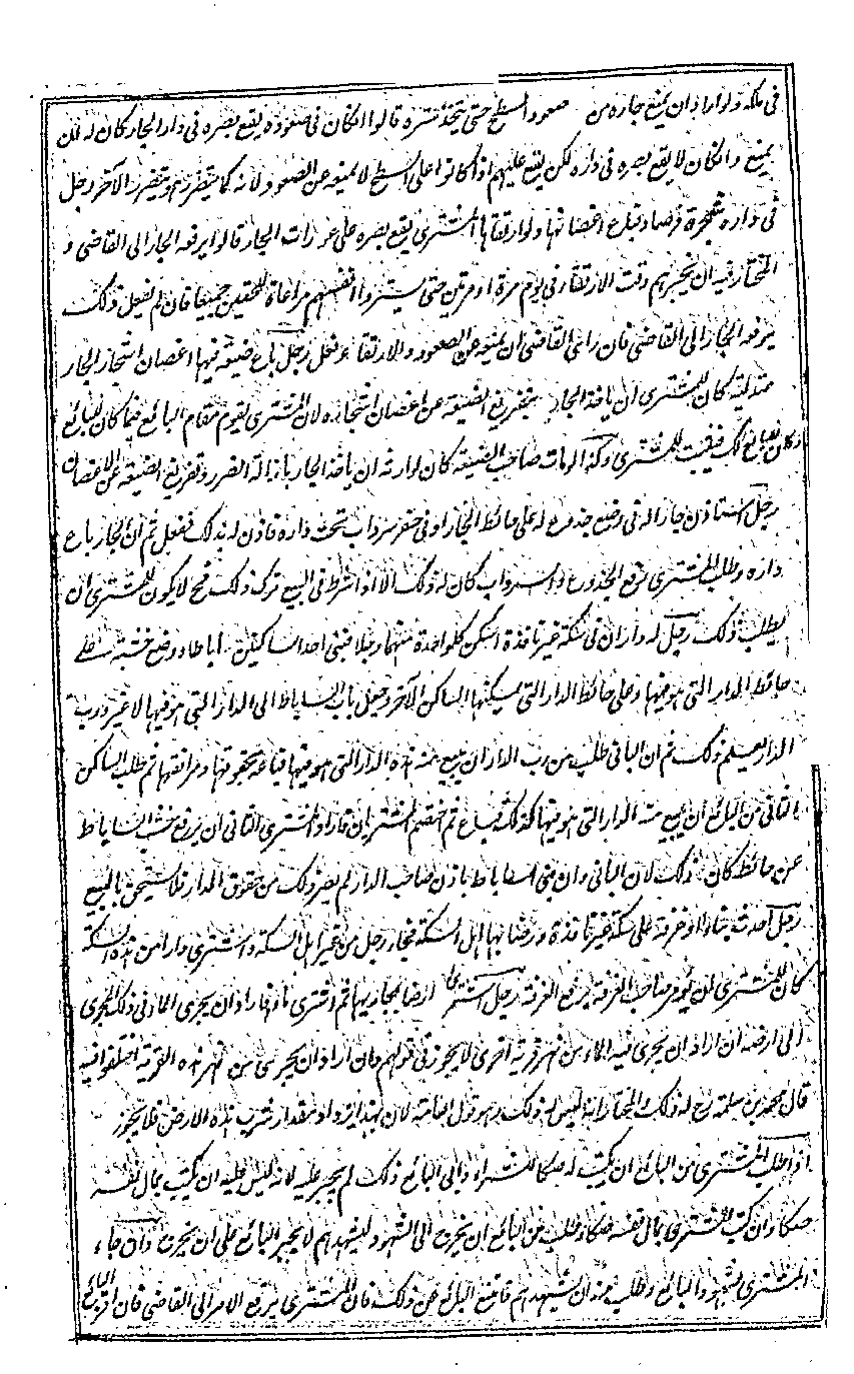 فى ملكه ولو اراد ان يمنع جاره من صعود السطح حتى يتخذ سترة قالوا ان كان فى صعوده يقع بصره فى دار الجار كان له ان
يمنع وان كان لا يقع بصره فى داره لكن يقع عليهم اذا كانوا على السطح لا يمنعه عن الصعود لانه كما يتضرر هو يتضرر الآخر رجل
فى داره شجرة فرصاد فباع اغصانها ولو ارتقاها المشترى يقع بصره على عورات الجار قالوا يرفع الجار الى القاضى و
المختار فيه ان يخبرهم وقت الارتقاء فى يوم مرة او مرتين حتى يستروا انفسهم مراعاة للحقين جميعا فان لم يفعل ذلك
يرفعه الجار الى القاضى فان راى القاضى ان يمنعه عن الصعود والارتقاء فعل رجل باع ضيعة فيها اغصان اشجار الجار
متدلية كان للمشترى ان ياخذ الجار بتفريغ الضيعة عن اغصان اشجاره لان المشترى يقوم مقام البائع فيما كان للبائع
وكان للبائع ذلك فيثبت للمشترى وكذا لو مات صاحب الضيعة كان لوارثه ان ياخذ الجار بازالة الضرر وتفريغ الضيعة عن الاغصان
رجل استاذن جارا له فى وضع جذوع له على حائط الجار او فى حفر سرداب تحت داره فاذن له بذلك ففعل ثم ان الجار باع
داره وطلب المشترى رفع الجذوع والسرداب كان له ذلك الا اذا شرط فى البيع ترك ذلك فح لا يكون للمشترى ان
يطلب ذلك رجل له داران فى سكة غير نافذة اسكن كل واحدة منهما رجلا فبنى احد الساكنين ساباطا ووضع خشبة على
حائط الدار التى هو فيها وعلى حائط الدار التى يسكنها الساكن الآخر وجعل باب الساباط الى الدار التى هو فيها لا غير ورب
الدار يعلم ذلك ثم ان البانى طلب من رب الدار ان يبيع منه هذه الدار التى هو فيها فباعه بحقوقها ومرافقها ثم طلب الساكن
الثانى من البائع ان يبيع منه الدار التى هو فيها كذلك فباع ثم اختصم المشتريان فاراد المشترى الثانى ان يرفع خشب الساباط
عن حائطه كان له ذلك لان البانى وان بنى الساباط باذن صاحب الدار لم يصر ذلك من حقوق الدار فلا يستحق بالبيع
رجل احدث بناء او غرفة على سكة غير نافذة ورضى بها اهل السكة فجاء رجل من غير اهل السكة واشترى دارا من هذه السكة
كان للمشترى ان يؤمر صاحب الغرفة برفع الغرفة رجل اشترى ارضا بمجاريها ثم اشترى فاراد ان يجرى الماء فى ذلك المجرى
الى ارضه ان اراد ان يجرى فيه الماء من نهر قرية اخرى لا يجوز فى قولهم وان اراد ان يجرى من نهر هذه القرية اختلفوا فيه
قال محمد بن سلمة رح له ذلك والمختار انه ليس له ذلك وهو قول العامة لان بهذا يزداد مقدار شرب هذه الارض فلا يجوز
اذا طلب المشترى من البائع ان يكتب له صكا للشراء وابى البائع ذلك لم يجبر عليه لانه ليس عليه ان يكتب بمال نفسه
صكا وان كتب المشترى بمال نفسه صكا وطلب من البائع ان يخرج الى الشهود ليشهدهم لا يجبر البائع على ان يخرج وان جاء
المشترى بشهود الى البائع وطلب منه ان يشهدهم فامتنع البائع عن ذلك فان المشترى يرفع الامر الى القاضى فان اقر البائع